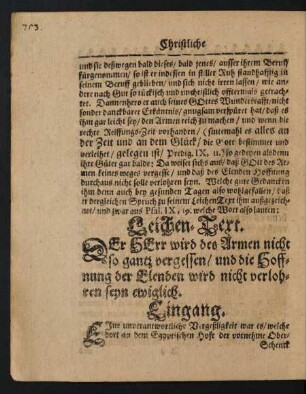 703.
Christliche
und sie deßwegen bald dieses/ bald jenes/ ausser ihrem Beruff
fürgenommen/ so ist er indessen in stiller Ruh standhafftig in
seinem Beruff geblieben/ und sich nicht irren lassen/ wie an
dere nach Gut so tückisch und unchristlich offtermals getrach-
tet. Dannenhero er auch seines GOttes Wunderkrafft/ nicht
sonder danckbarer Erkäntnis/ gnugsam verspüret hat/ daß es
ihm gar leicht sey/ den Armen reich zu machen/ und wenn die
rechte Reiffungs-Zeit vorhanden/ (sintemahl es alles an
der Zeit und an dem Glück/ die Gott bestimmet und
verleihet/ gelegen ist/ Predig. IX, 11.) so gedeyen alsdenn
ihre Güter gar balde; Da weiset sichs aus/ daß GOtt des Ar-
men keines weges vergesse/ und daß des Elenden Hoffnung
durchaus nicht solle verlohren seyn. Welche gute Gedancken
ihm denn auch bey gesunden Tagen also wohlgefallen/ daß
er dergleichen Spruch zu seinem LeichenText ihm außgezeich-
net/ und zwar aus Psal. IX, 19. welche Wort also lauten:
Leichen-Text.
DEr HErr wird des Armen nicht
so gantz vergessen/ und die Hoff-
nung der Elenden wird nicht verloh-
ren seyn ewiglich.
Eingang.
EIne unverantwortliche Vergeßligkeit war es/ welche
dort an dem Egyptischen Hofe der vornehme Ober-
Schenck